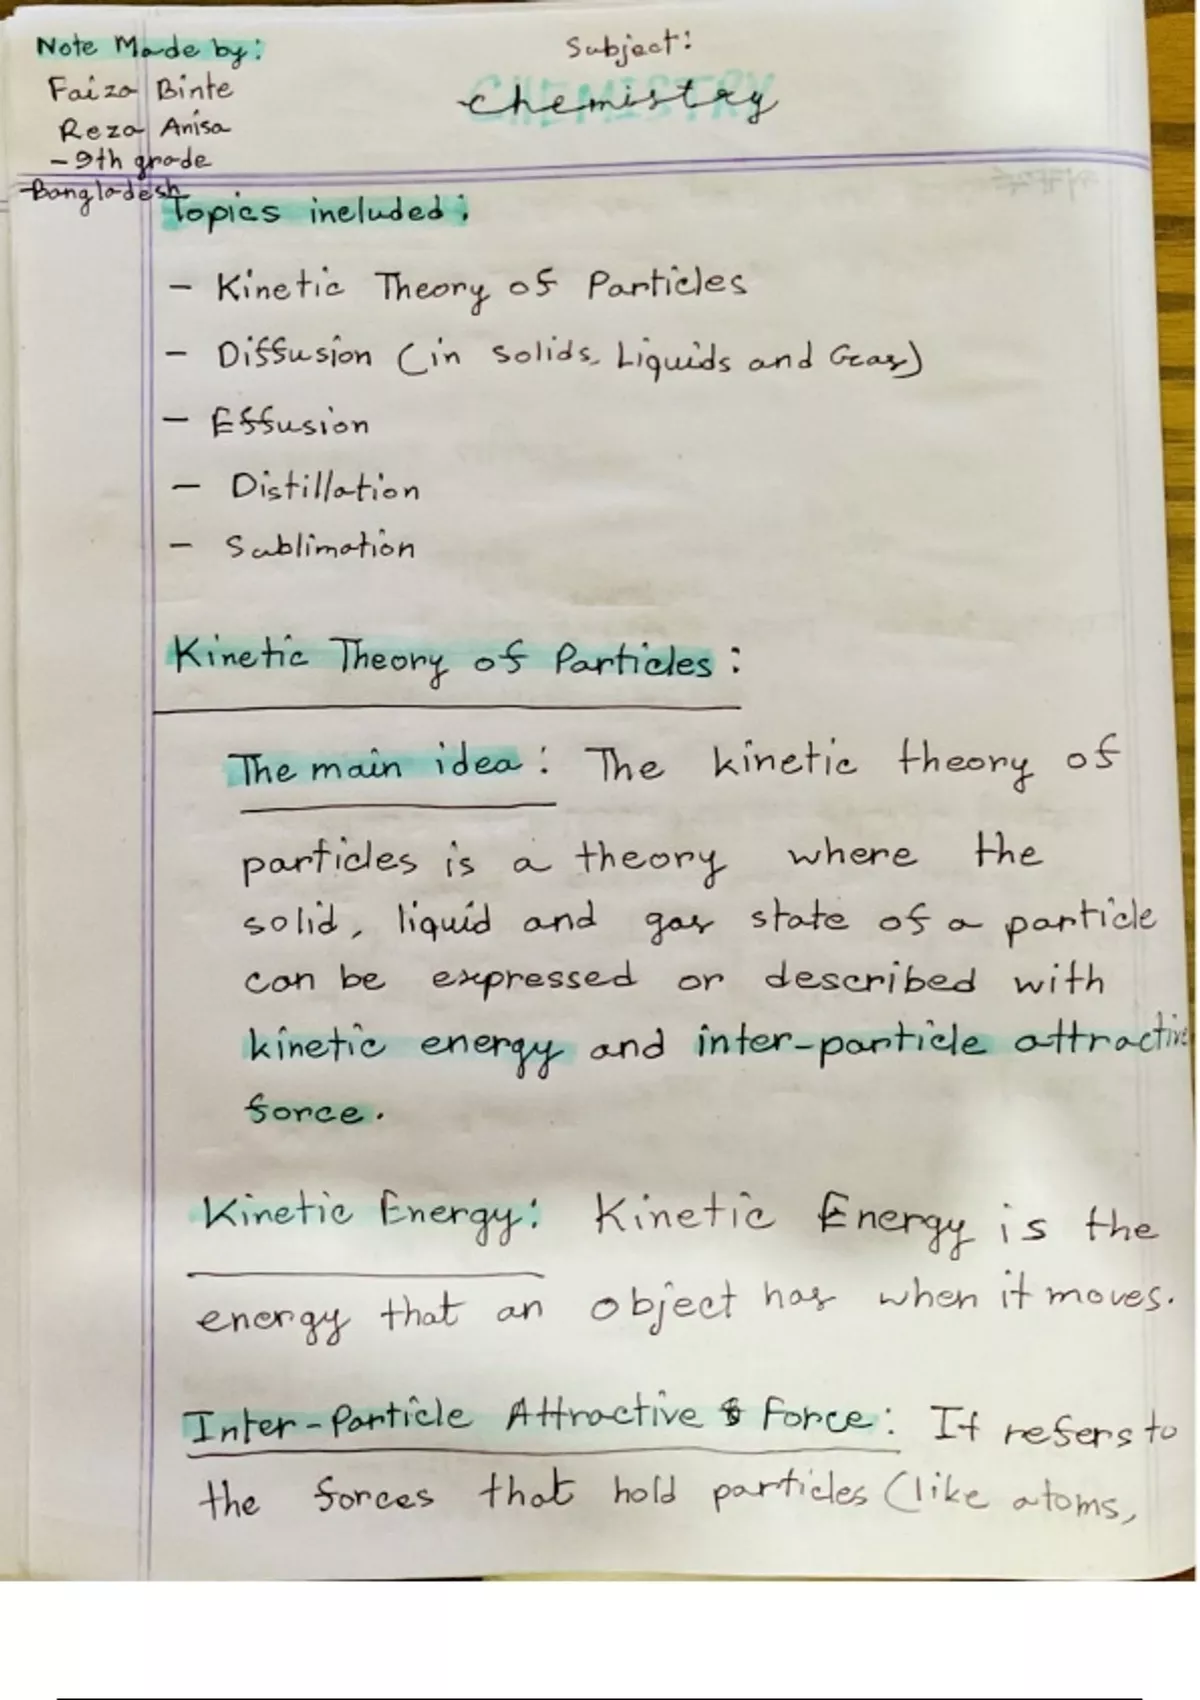 Note Made by:
Faiza Binte
Reza Anisa
- 9th grade
Bangladesh
Subject:
CHEMISTRY
Chemistry
Topics included:
- Kinetic Theory of Particles
- Diffusion (in solids, Liquids and Gas)
- Effusion
- Distillation
- Sublimation
Kinetic Theory of Particles:
The main idea: The kinetic theory of
particles is a theory where the
solid, liquid and gas state of a particle
can be expressed or described with
kinetic energy and inter-particle attractive
force.
Kinetic Energy: Kinetic Energy is the
energy that an object has when it moves.
Inter-Particle Attractive Force: It refers to
the forces that hold particles (like atoms,